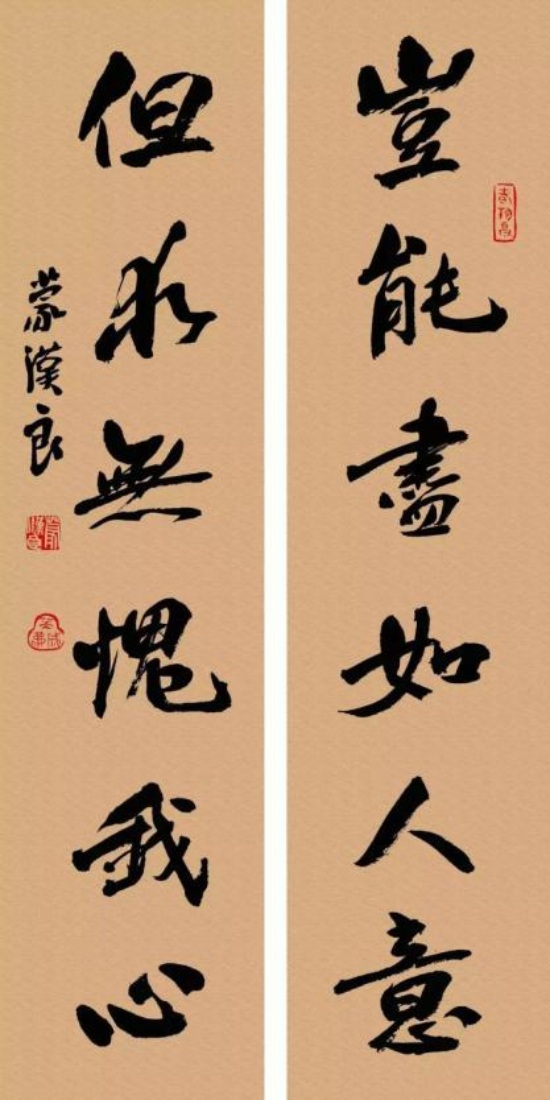 豈能盡如人意
但求無愧我心
蒙漢良